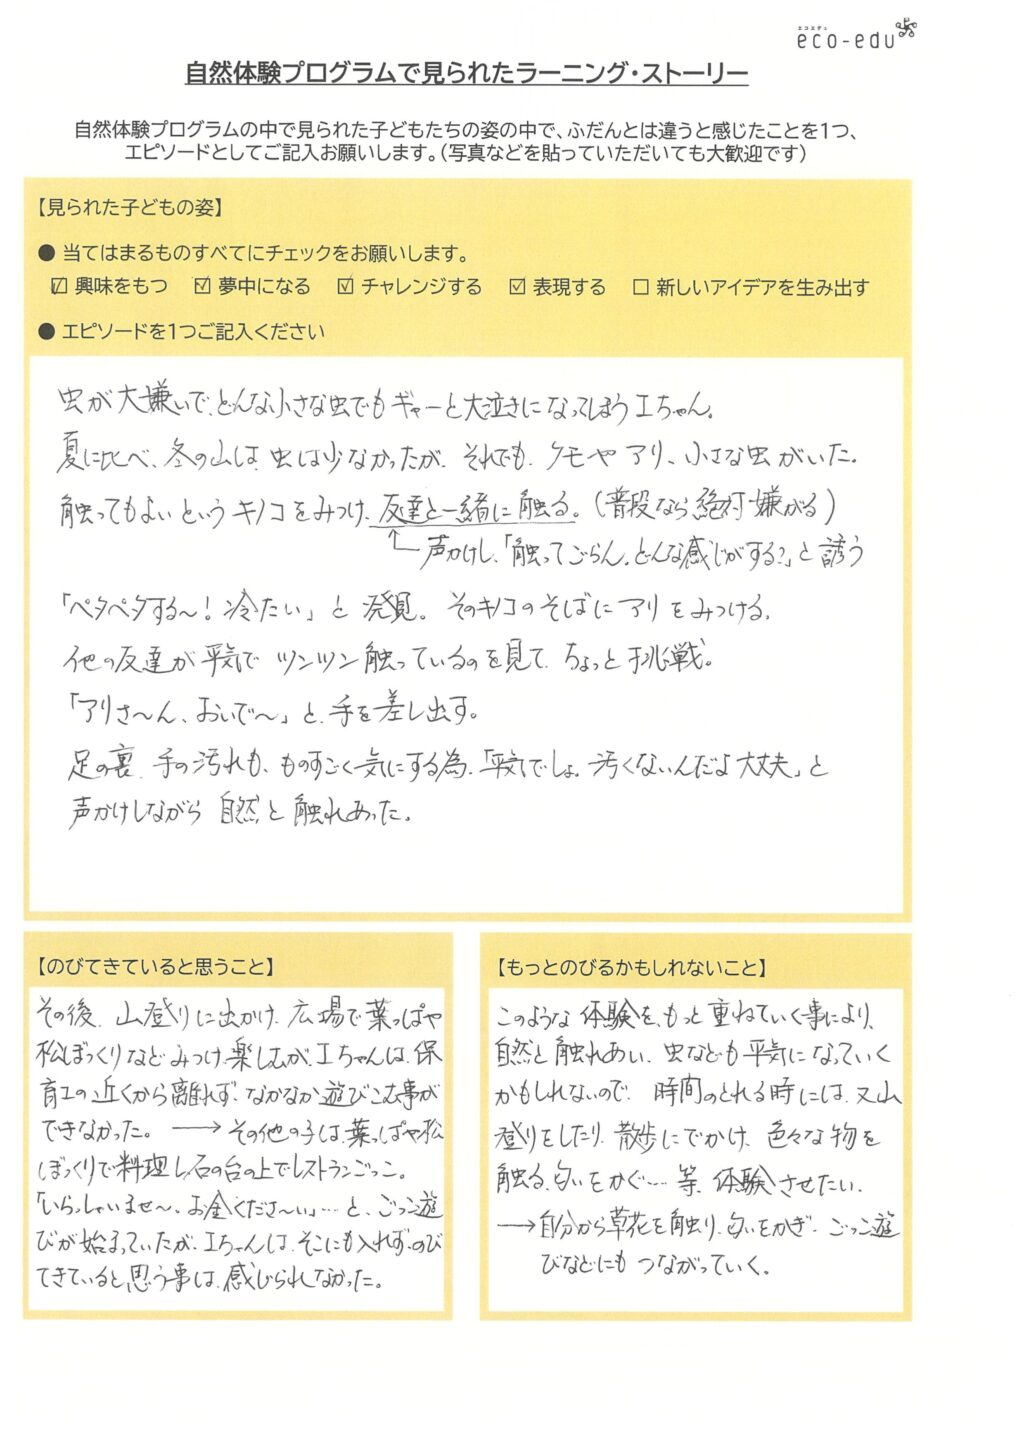 エコエデュ
eco-edu
自然体験プログラムで見られたラーニング・ストーリー
自然体験プログラムの中で見られた子どもたちの姿の中で、ふだんとは違うと感じたことを1つ、
エピソードとしてご記入お願いします。(写真などを貼っていただいても大歓迎です)
【見られた子どもの姿】
● 当てはまるものすべてにチェックをお願いします。
☑ 興味をもつ ☑ 夢中になる ☑ チャレンジする ☑ 表現する □ 新しいアイデアを生み出す
● エピソードを1つご記入ください
虫が大嫌いで、どんな小さな虫でもギャーと大泣きになってしまうIちゃん。
夏に比べ、冬の山は、虫は少なかったが、それでも、クモやアリ、小さな虫がいた。
触ってもよいというキノコをみつけ、友達と一緒に触る。(普段なら絶対嫌がる)
↑声かけし、「触ってごらん。どんな感じがする?」と誘う
「ペタペタする〜!冷たい」と発見。そのキノコのそばにアリをみつける。
他の友達が平気でツンツン触っているのを見て、ちょっと挑戦。
「アリさ〜ん、おいで〜」と、手を差し出す。
足の裏、手の汚れも、ものすごく気にする為、「平気でしょ。汚くないんだよ大丈夫」と
声かけしながら自然と触れあった。
【のびてきていると思うこと】
その後、山登りに出かけ、広場で葉っぱや
松ぼっくりなどみつけ楽しむが、Iちゃんは、保
育士の近くから離れず、なかなか遊びこむ事が
できなかった。→その他の子は、葉っぱや松
ぼっくりで料理し、石の台の上でレストランごっこ。
「いらっしゃいませ〜、お金くださ〜い」…と、ごっこ遊
びが始まっていたが、Iちゃんは、そこにも入れず、のび
てきていると思う事は、感じられなかった。
【もっとのびるかもしれないこと】
このような体験を、もっと重ねていく事により、
自然と触れあい、虫なども平気になっていく
かもしれないので、時間のとれる時には、又山
登りをしたり、散歩にでかけ、色々な物を
触る、匂いをかぐ…等、体験させたい。
→自分から草花を触り、匂いをかぎ、ごっこ遊
びなどにもつながっていく。